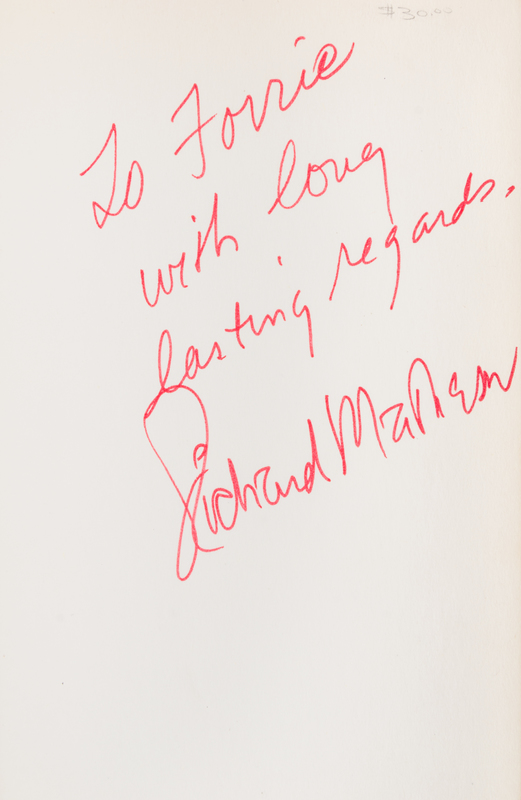 $30.00
To Forrie
with long
lasting regards.
Richard Matheson